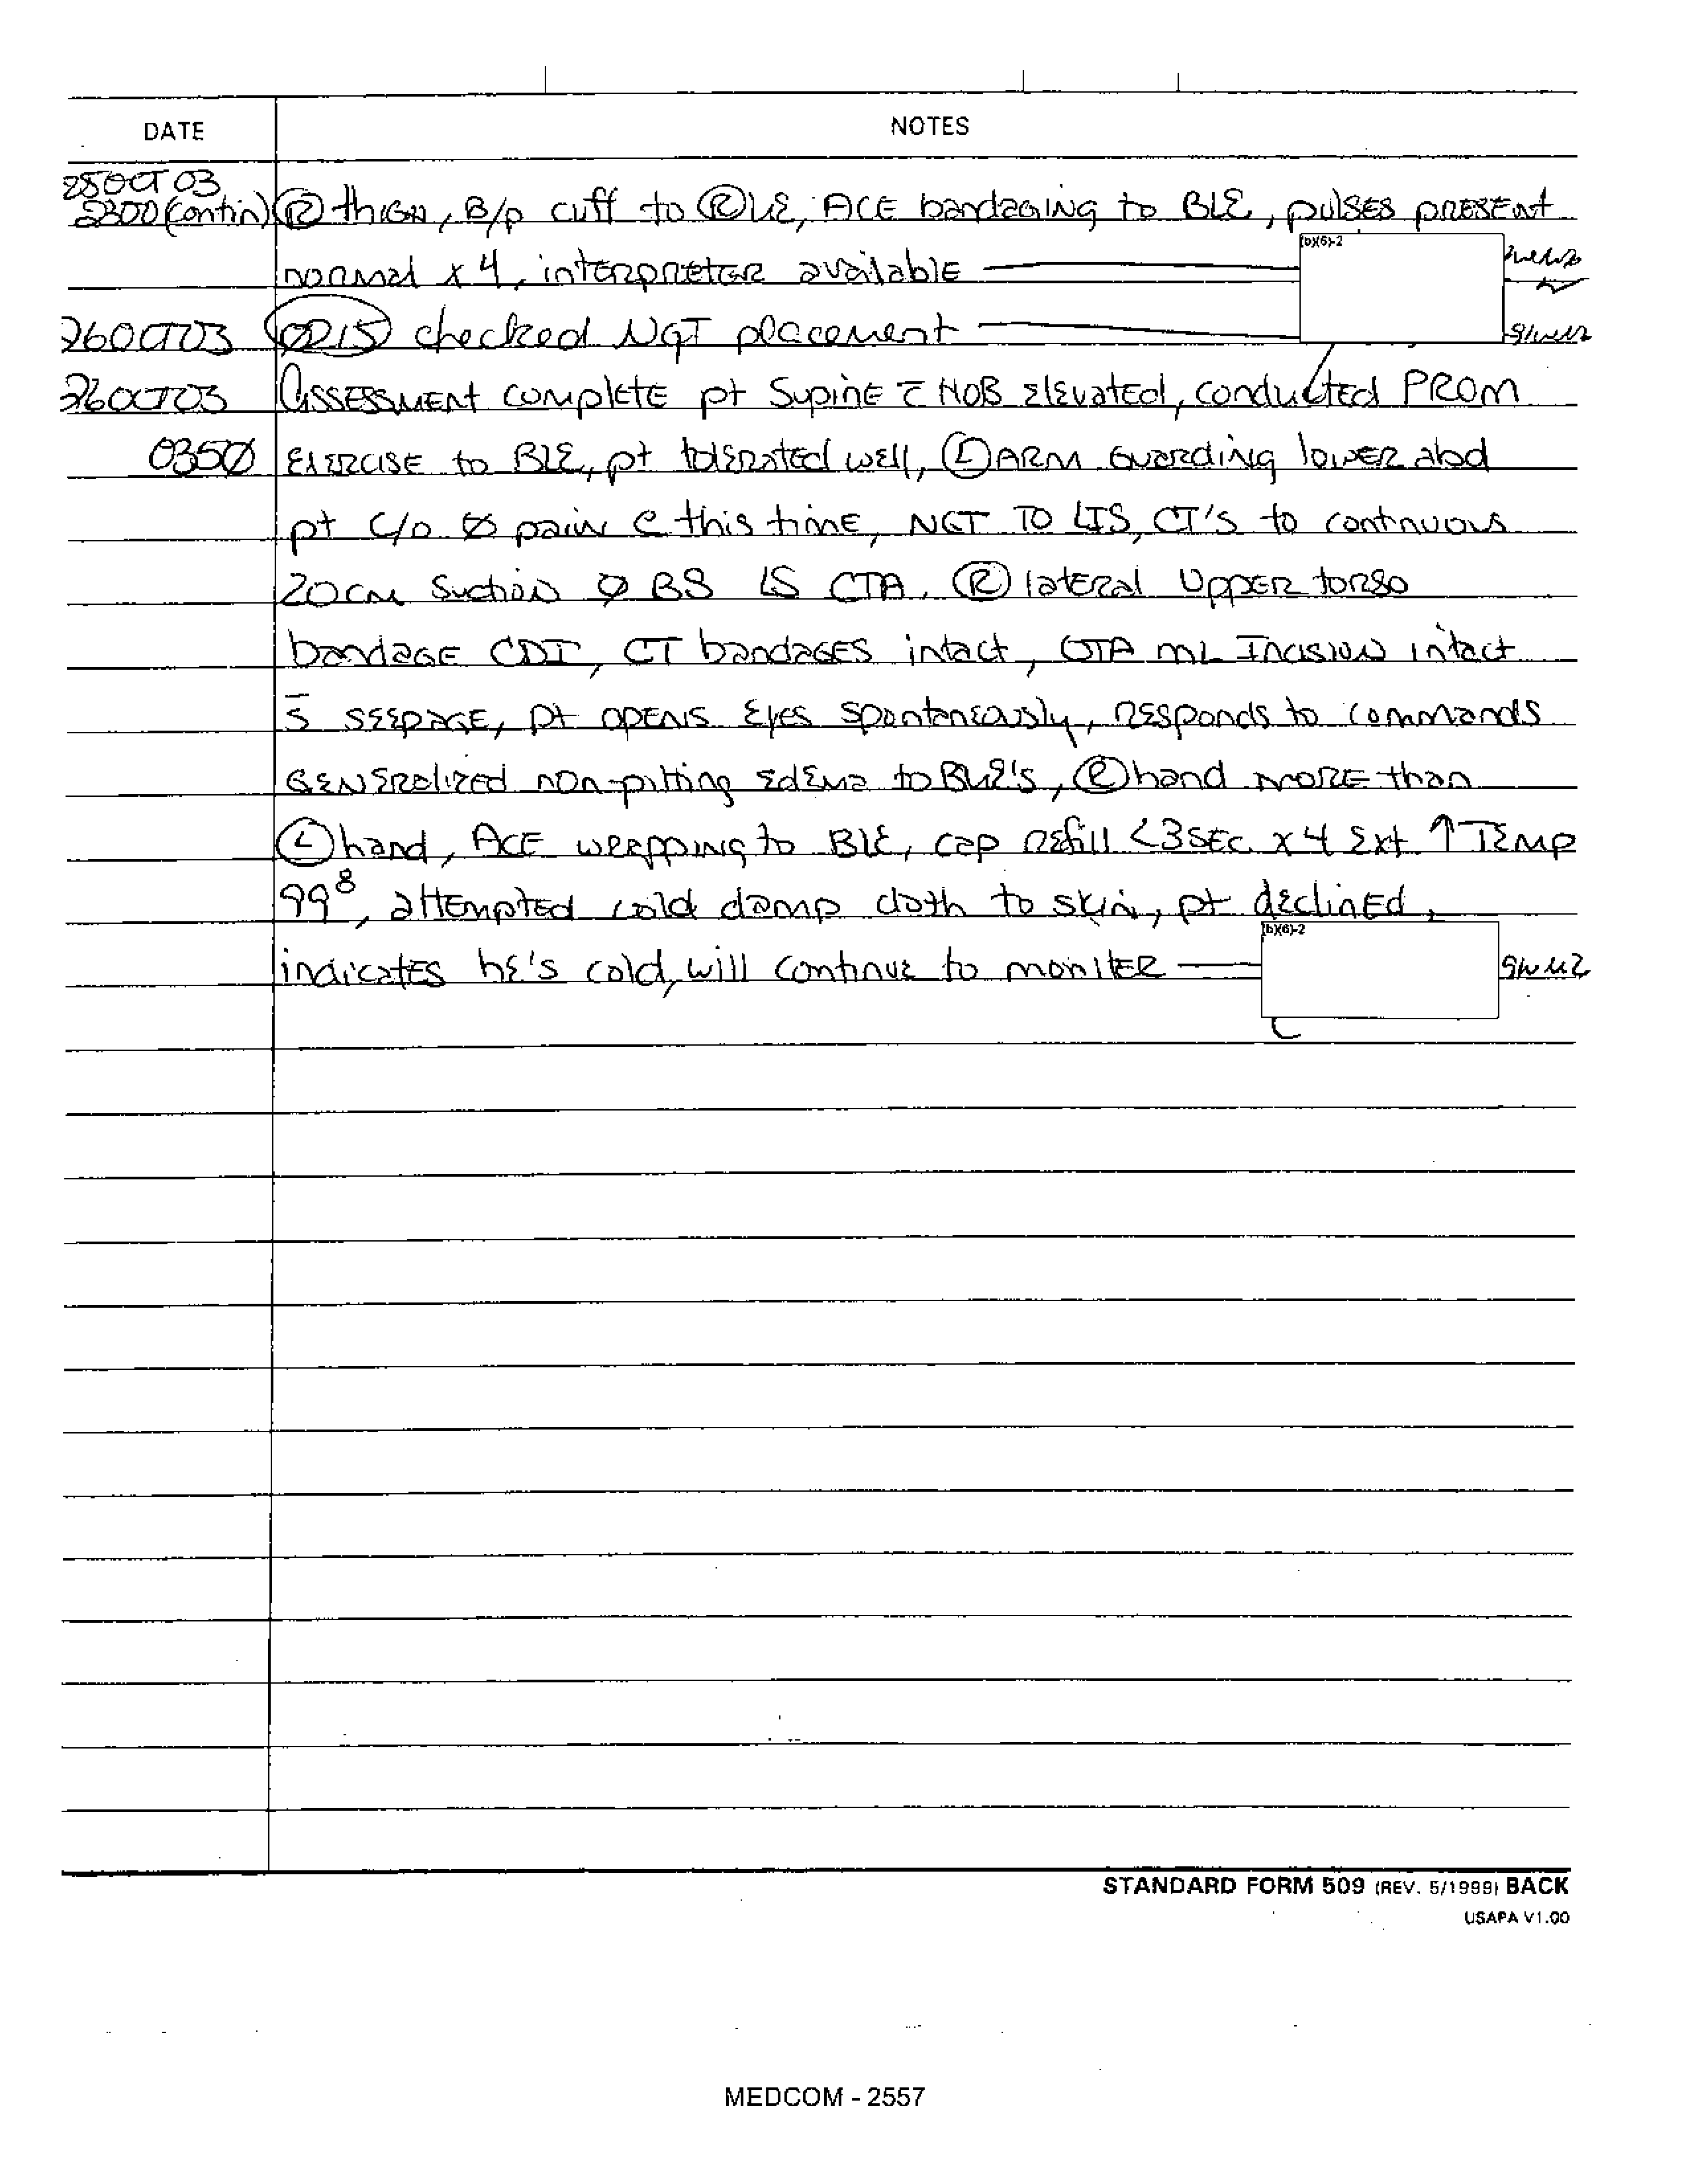 DATE NOTES
25OCT03
2300 (contin) Ⓡ thigh, B/p cuff to ⓇLE, ACE bandaging to BLE, pulses present
(b)(6)-2
normal x 4, interpreter available
26OCT03 0215 checked NGT placement
26OCT03 Assessment complete pt supine c̄ HOB elevated, conducted PROM
0350 Exercise to BLE, pt tolerated well, Ⓛ ARM guarding lower abd
pt c/o Ø pain @ this time, NGT TO LIS, CT's to continuous
20cm suction Ø BS LS CTA. Ⓡ lateral upper torso
bandage CDI, CT bandages intact, OTA ML Incision intact
s̄ seepage, pt opens eyes spontaneously, responds to commands
Generalized non-pitting edema to BUE's, Ⓡ hand more than
Ⓛ hand, ACE wrapping to BLE, cap refill <3 sec x 4 ext ↑ Temp
99⁸, attempted cold damp cloth to skin, pt declined,
(b)(6)-2
indicates he's cold, will continue to moniter
STANDARD FORM 509 (REV. 5/1999) BACK
USAPA V1.00
MEDCOM - 2557